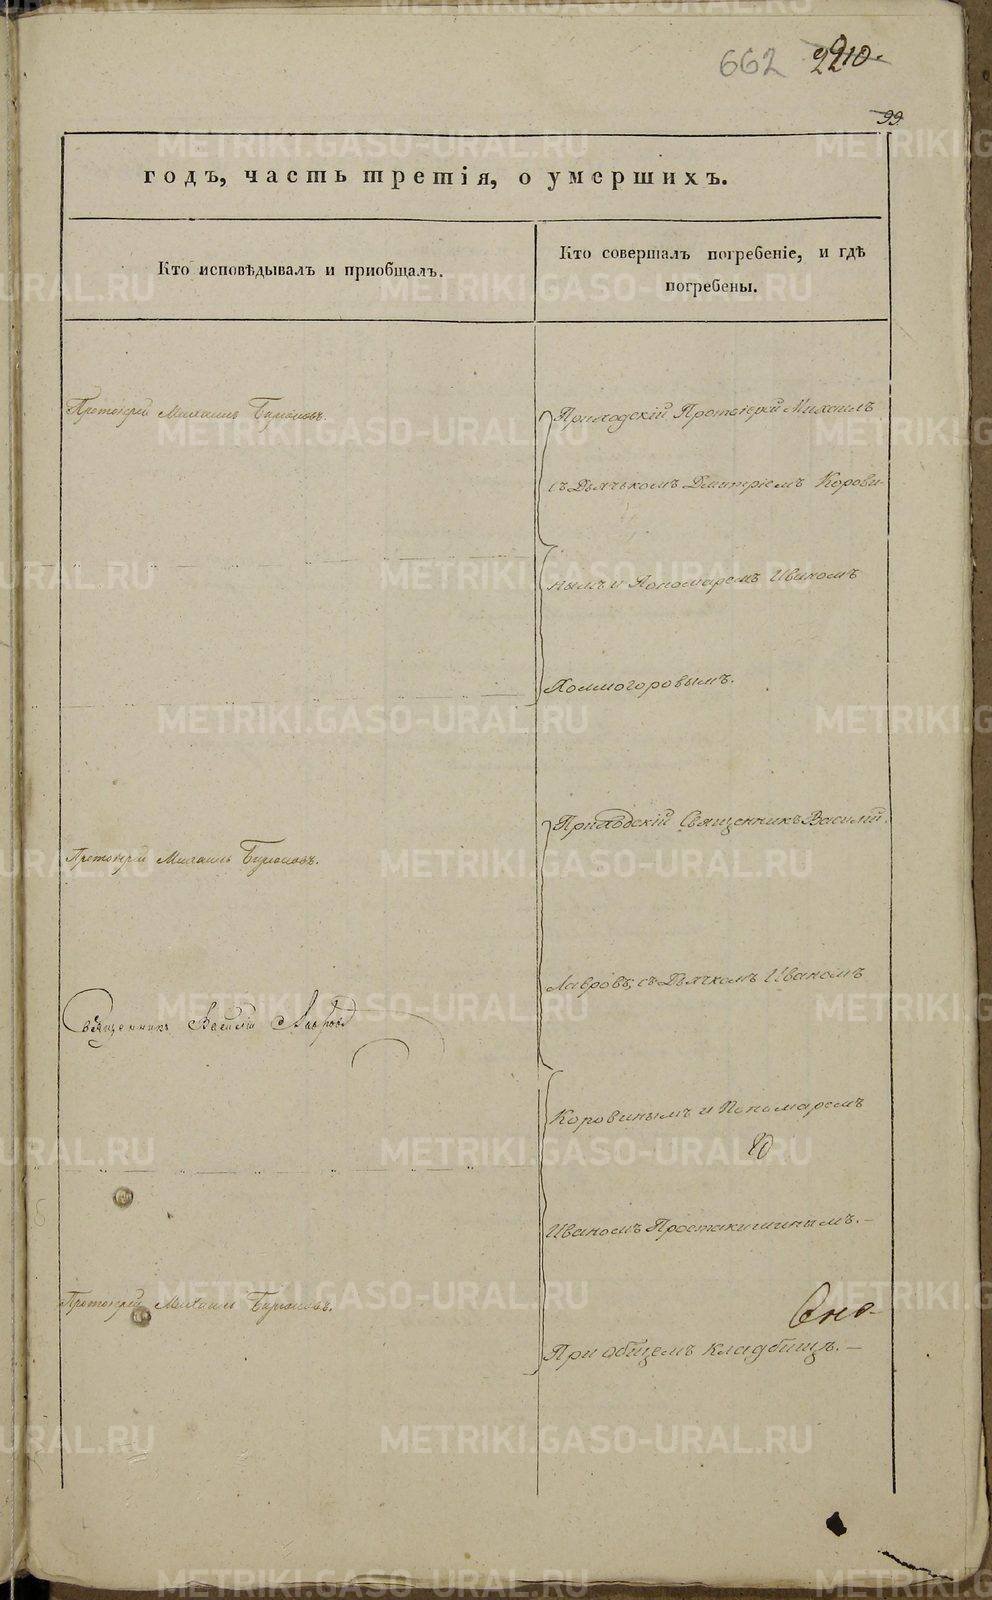 662 2210.
99.
годъ, часть третія, о умершихъ.
Кто исповѣдывалъ и пріобщалъ.
Кто совершалъ погребеніе, и гдѣ
погребены.
Протоіерей Михаилъ
Приходскій Протоіерей Михаилъ
съ Дьячькомъ Дмитріемъ Корови-
нымъ и Пономаремъ Иваномъ
Холмогоровымъ.
Приходскій Священникъ Василій
Протоіерей Михаилъ
Лавровъ, съ Дьячкомъ Иваномъ
Священникъ Василій Лавровъ
Коровинымъ и Пономаремъ
Иваномъ Простакишинымъ.—
Протоіерей Михаилъ
При общемъ кладбищѣ.—
METRIKI.GASO-URAL.RU